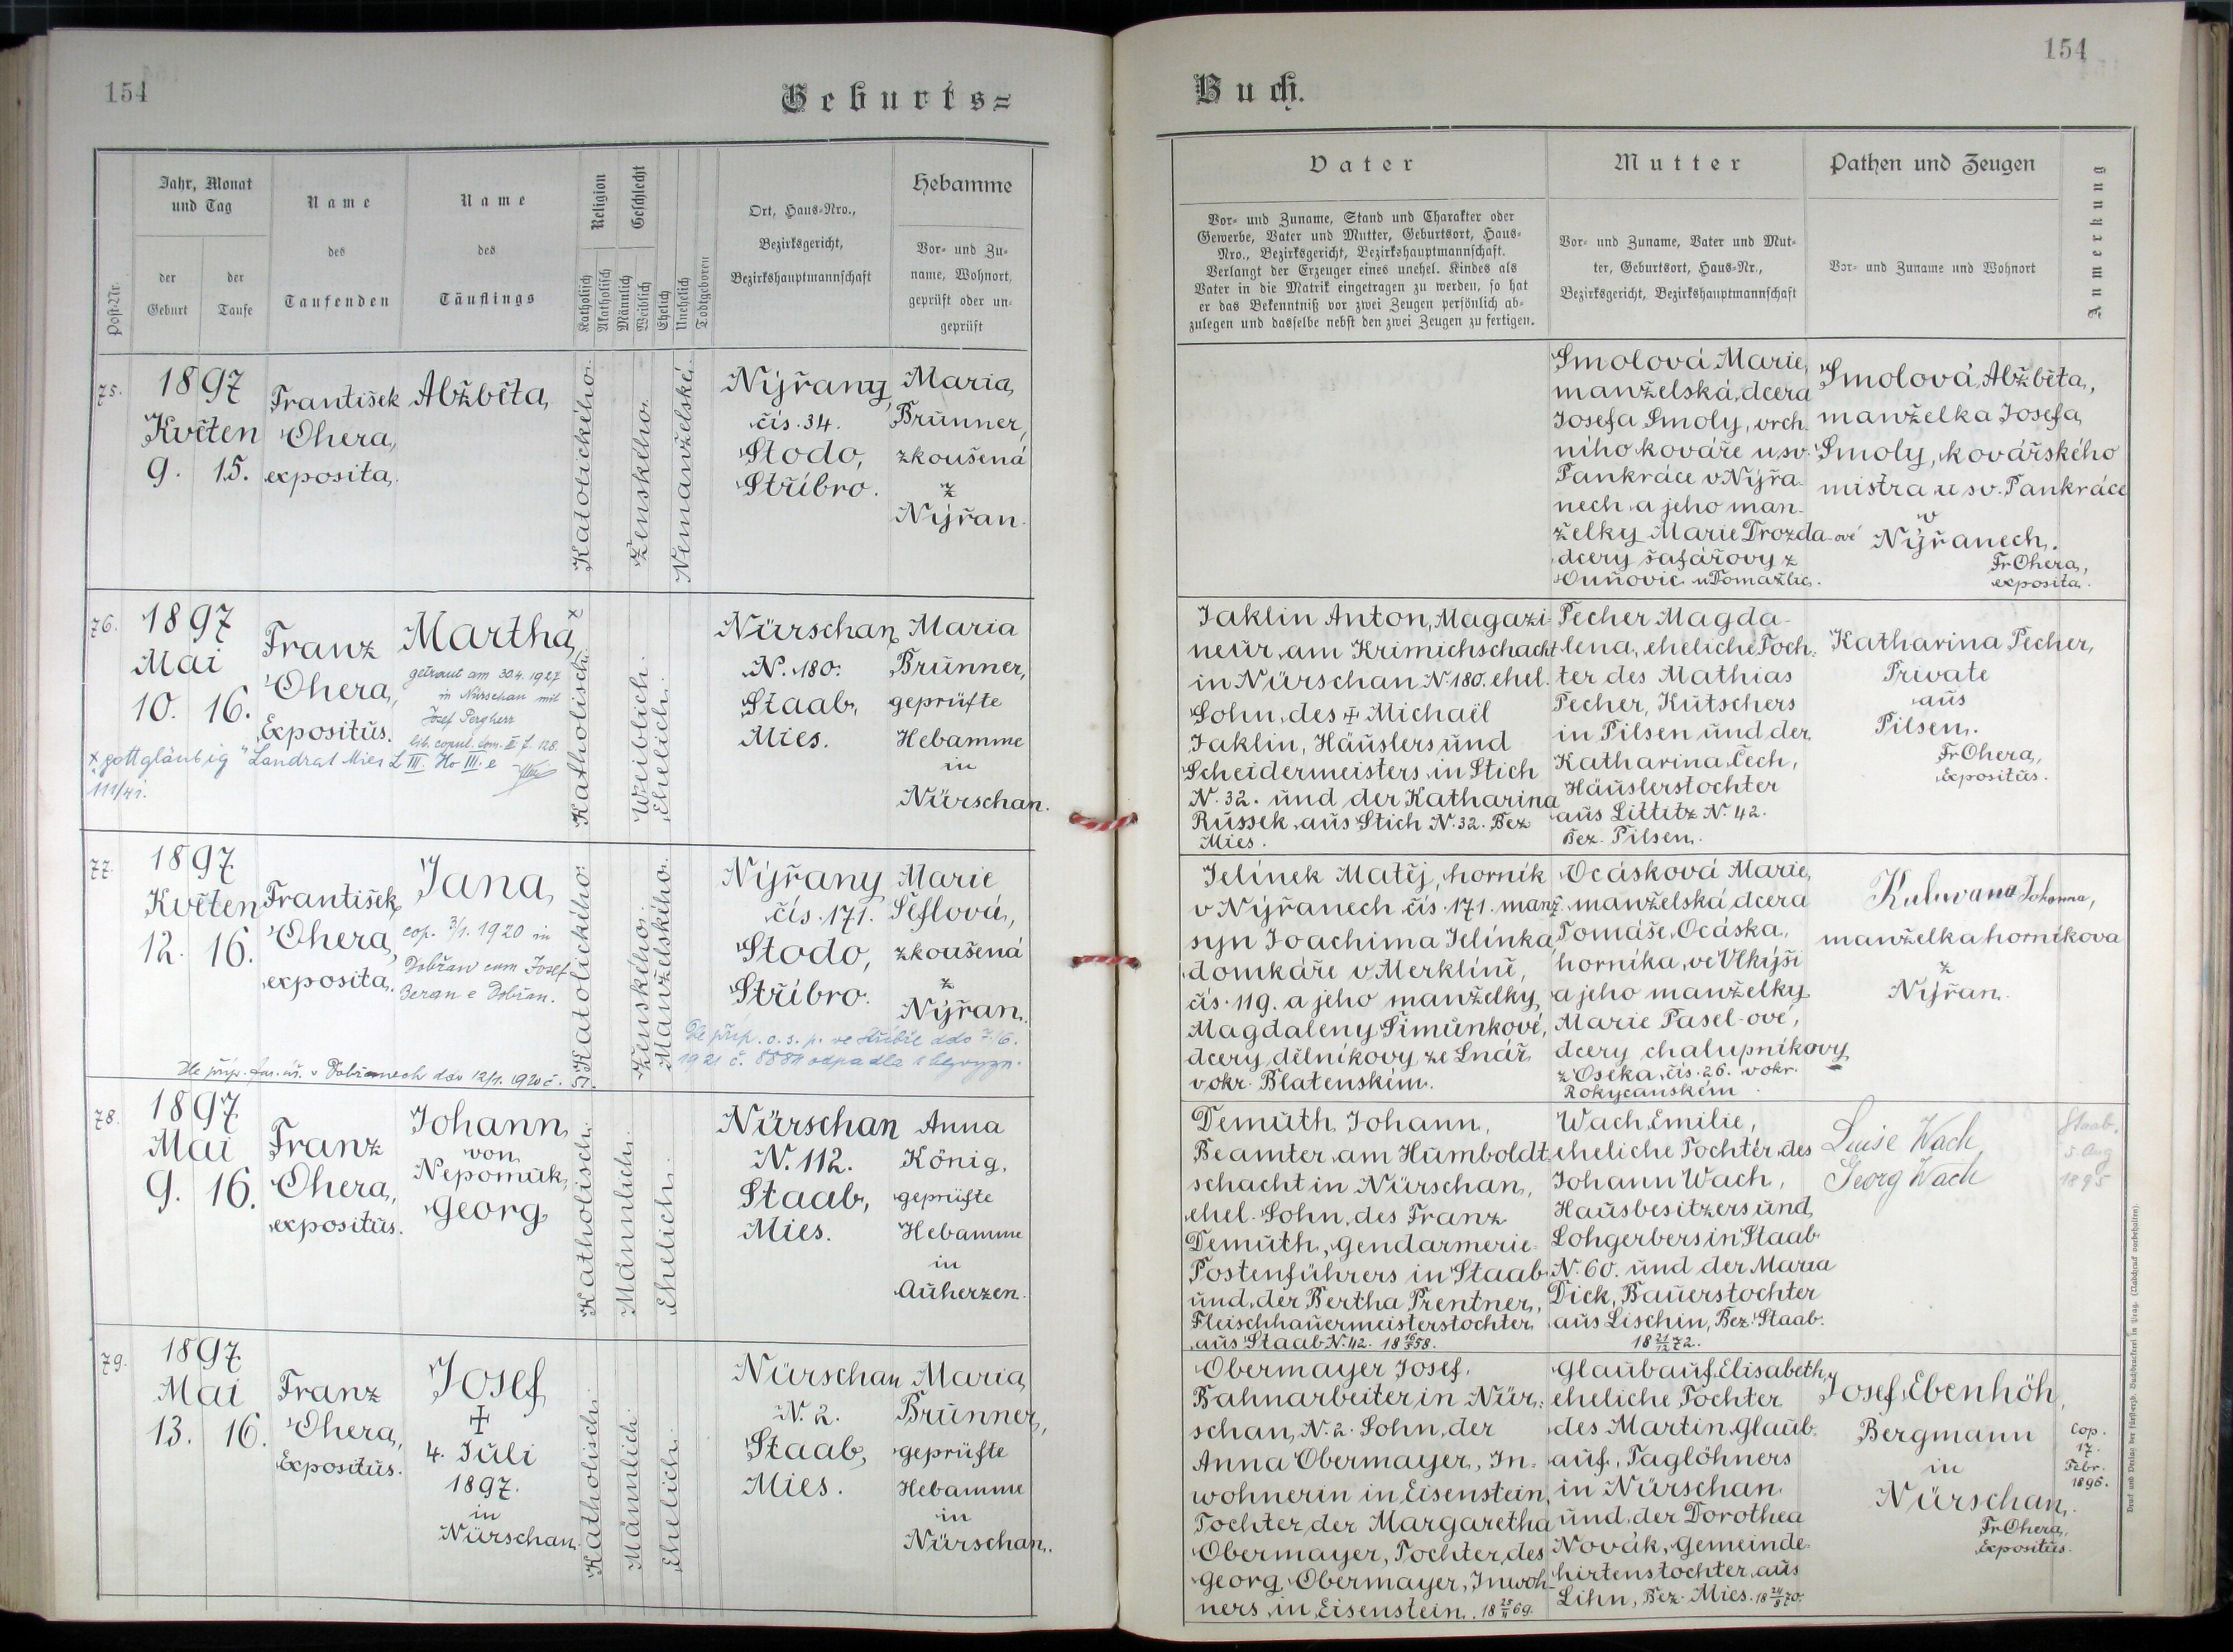 154
Geburts=
Jahr, Monat
und Tag
Post-Nr.
der
Geburt
der
Taufe
Name
des
Taufenden
Name
des
Täuflings
Religion
Katholisch
Akatholisch
Geschlecht
Männlich
Weiblich
Ehelich
Unehelich
Todtgeboren
Ort, Haus-Nro.,
Bezirksgericht,
Bezirkshauptmannschaft
Hebamme
Vor- und Zu-
name, Wohnort,
geprüft oder un-
geprüft
75.
1897
Květen
9. 15.
František
Ohera,
exposita.
Alžběta
Katolického.
Ženského.
Nemanželské.
Nýřany
čís. 34.
Stodo,
Stříbro.
Maria
Brunner,
zkoušená
z
Nýřan.
76.
1897
Mai
10. 16.
Franz
Ohera,
Expositus.
Martha x
getraut am 30.4.1927
in Nürschan mit
Josef Pergherr
lib. copul. tom. II f. 128.
x gottgläubig" Landrat Mies L III. Ho III. e
111/41.
Katholisch.
Weiblich.
Ehelich.
Nürschan
N. 180.
Staab,
Mies.
Maria
Brunner,
geprüfte
Hebamme
in
Nürschan.
77.
1897
Květen
12. 16.
František
Ohera,
exposita.
Jana
cop. 3/1. 1920 in
Dobřan cum Josef
Beran e Dobřan.
Dle příp. far. úř. v Dobřanech ddo 12/1. 1920 č. 57.
Katolického.
Ženského.
Manželského.
Nýřany
čís. 171.
Stodo,
Stříbro.
Dle příp. o. s. p. ve Stříbře ddo 7/6.
1921 č. 8881 odpadla k bezvyzn.
Marie
Šeflová,
zkoušená
z
Nýřan.
78.
1897
Mai
9. 16.
Franz
Ohera,
expositus.
Johann
von
Nepomuk,
Georg
Katholisch.
Männlich.
Ehelich.
Nürschan
N. 112.
Staab,
Mies.
Anna
König,
geprüfte
Hebamme
in
Auherzen.
79.
1897
Mai
13. 16.
Franz
Ohera,
Expositus.
Josef
+
4. Juli
1897.
in
Nürschan.
Katholisch.
Männlich.
Ehelich.
Nürschan
N. 2.
Staab,
Mies.
Maria
Brunner,
geprüfte
Hebamme
in
Nürschan.
154
Buch.
Vater
Vor- und Zuname, Stand und Charakter oder
Gewerbe, Vater und Mutter, Geburtsort, Haus-
Nro., Bezirksgericht, Bezirkshauptmannschaft.
Verlangt der Erzeuger eines unehel. Kindes als
Vater in die Matrik eingetragen zu werden, so hat
er das Bekenntniß vor zwei Zeugen persönlich ab-
zulegen und dasselbe nebst den zwei Zeugen zu fertigen.
Mutter
Vor- und Zuname, Vater und Mut-
ter, Geburtsort, Haus-Nr.,
Bezirksgericht, Bezirkshauptmannschaft
Pathen und Zeugen
Vor- und Zuname und Wohnort
Anmerkung
Smolová Marie,
manželská dcera
Josefa Smoly, vrch.
ního kováře u sv.
Pankráce v Nýřa-
nech a jeho man-
želky Marie Drozda-ové
dcery šafářovy z
Ouňovic u Domažlic.
Smolová Alžběta,
manželka Josefa
Smoly, kovářského
mistra u sv. Pankráce
v
Nýřanech.
Fr Ohera,
exposita.
Jaklin Anton, Magazi-
neur am Krimichschacht
in Nürschan N. 180. ehel.
Sohn des + Michaël
Jaklin, Häuslers und
Scheidermeisters in Stich
N. 32. und der Katharina
Russek aus Stich N. 32. Bez
Mies.
Pecher Magda-
lena, eheliche Toch:
ter des Mathias
Pecher, Kutschers
in Pilsen und der
Katharina Čech,
Häuslerstochter
aus Littitz N. 42.
Bez. Pilsen.
Katharina Pecher,
Private
aus
Pilsen.
Fr Ohera,
Expositus.
Jelínek Matěj, horník
v Nýřanech čís. 171. manž.
syn Joachima Jelínka
domkáře v Merklíně,
čís. 119. a jeho manželky
Magdaleny Šimůnkové,
dcery dělníkovy ze Lnář
v okr. Blatenském.
Ocásková Marie,
manželská dcera
Tomáše Ocáska,
horníka ve Vlkýši
a jeho manželky
Marie Pasel-ové,
dcery chalupníkovy
z Oseka čís. 26. v okr.
Rokycanském
Johanna,
manželka horníkova
z
Nýřan.
Demuth Johann,
Beamter am Humboldt-
schacht in Nürschan,
ehel. Sohn des Franz
Demuth, Gendarmerie-
Postenführers in Staab
und der Bertha Prentner,
Fleischhauermeisterstochter
aus Staab N. 42. 18 16/5 58.
Wach Emilie,
eheliche Tochter des
Johann Wach,
Hausbesitzers und
Lohgerbers in Staab
N. 60. und der Maria
Dick, Bauerstochter
aus Lischin, Bez. Staab.
18 21/12 72.
Luise Wach
Georg Wach
Staab.
5 Aug
1895
Obermayer Josef,
Bahnarbeiter in Nür:
schan, N. 2. Sohn der
Anna Obermayer, In-
wohnerin in Eisenstein,
Tochter der Margaretha
Obermayer, Tochter des
Georg Obermayer, Inwoh-
ners in Eisenstein. 18 25/11 69.
Glaubauf Elisabeth,
eheliche Tochter
des Martin Glaub-
auf, Taglöhners
in Nürschan
und der Dorothea
Novák, Gemeinde-
hirtenstochter aus
Lihn, Bez. Mies. 18 24/8 70.
Josef Ebenhöh,
Bergmann
in
Nürschan.
Fr Ohera,
Expositus.
Cop.
17.
Febr.
1896.
Druck und Verlag der fürsterzb. Buchdruckerei in Prag. (Nachdruck vorbehalten).